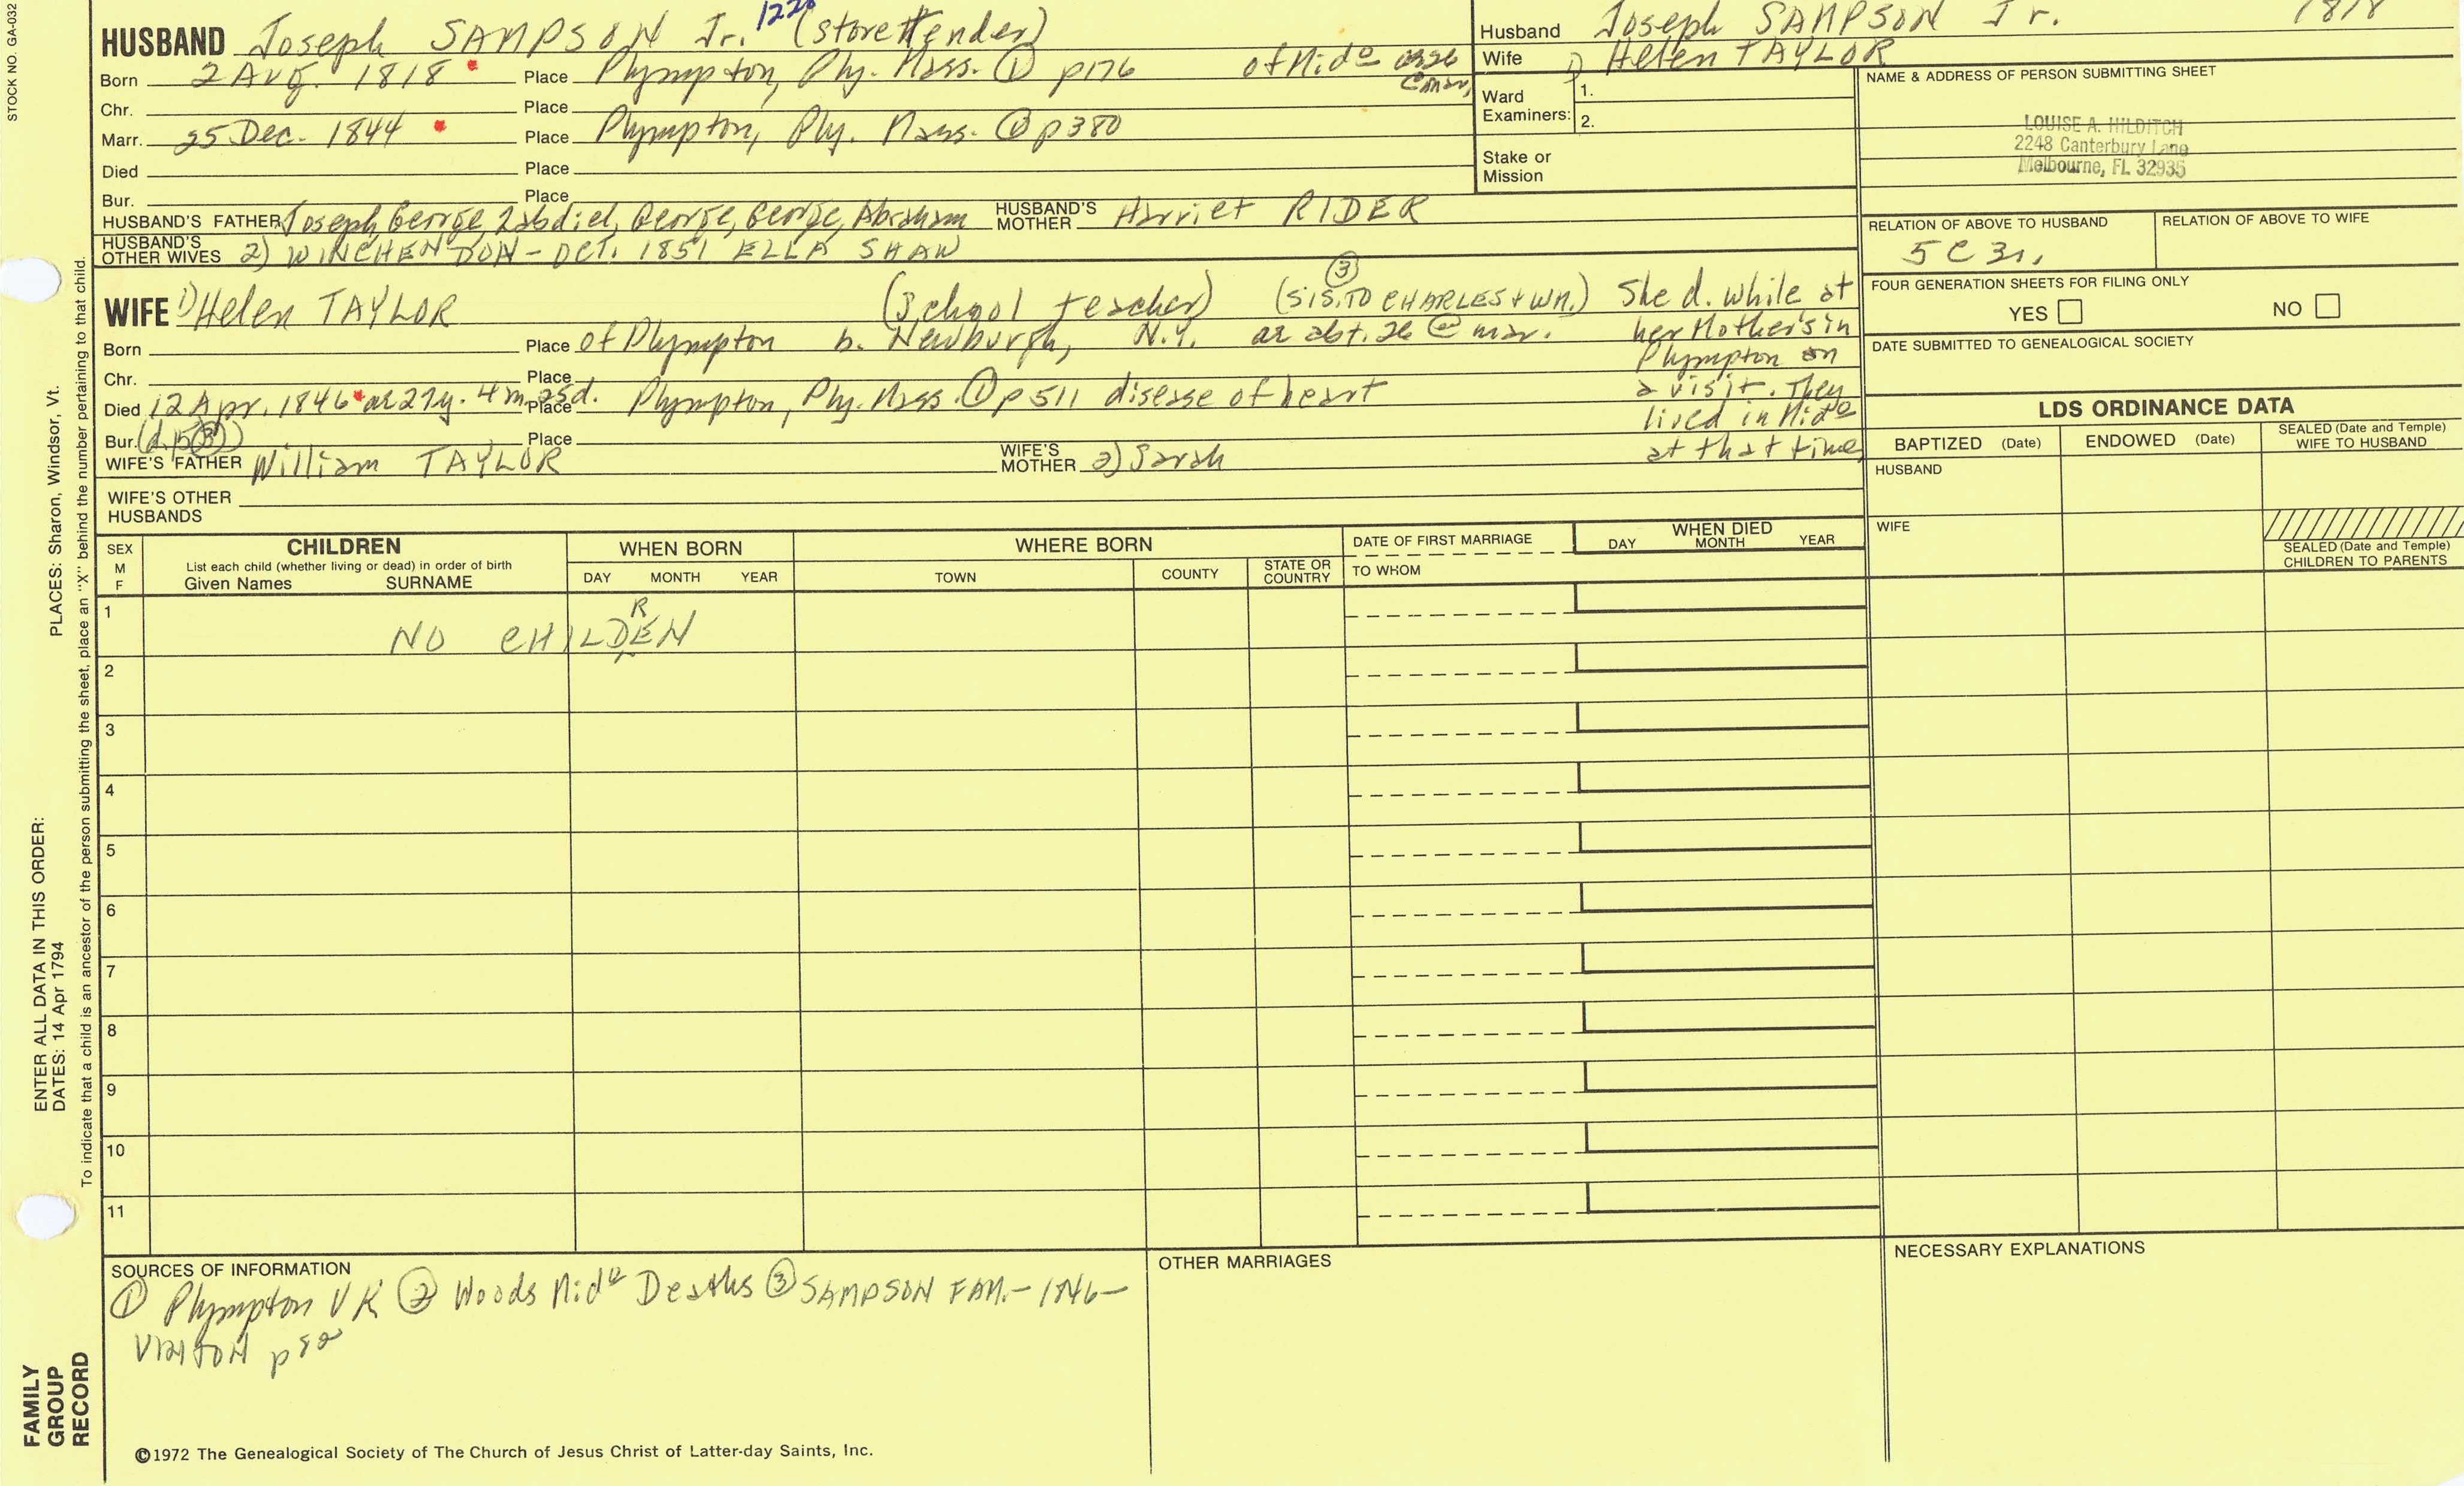 STOCK NO. GA-032
HUSBAND Joseph SAMPSON Jr. (store tender)
Born 2 Aug. 1818 Place Plympton, Ply. Mass. ① p176 of Mido ar 26 @ mar,
Chr. Place
Marr. 25 Dec. 1844 Place Plympton, Ply. Mass. ① p380
Died Place
Bur. Place
HUSBAND'S FATHER Joseph, George, Zabdiel, George, George, Abraham HUSBAND'S MOTHER Harriet RIDER
HUSBAND'S OTHER WIVES 2) WINCHENDON - OCT. 1851 ELLA SHAW
Husband Joseph SAMPSON Jr. 1818
Wife 1) Helen TAYLOR
Ward Examiners: 1.
2.
Stake or Mission
NAME & ADDRESS OF PERSON SUBMITTING SHEET
LOUISE A. HILDITCH
2248 Canterbury Lane
Melbourne, FL 32935
RELATION OF ABOVE TO HUSBAND RELATION OF ABOVE TO WIFE
5C3r,
FOUR GENERATION SHEETS FOR FILING ONLY
YES NO
DATE SUBMITTED TO GENEALOGICAL SOCIETY
WIFE 1) Helen TAYLOR (School teacher) ③ (SIS. TO CHARLES + WM.)
Born Place of Plympton b. Newburgh, N.Y. ar abt. 26 @ mar.
Chr. Place
Died 12 Apr. 1846 ar 27y. 4m. 25d. Place Plympton, Ply. Mass. ① p511 disease of heart
Bur. (d. p ③) Place
She d. while at
her Mother's in
Plympton on
a visit. They
lived in Mido
at that time
WIFE'S FATHER William TAYLOR WIFE'S MOTHER 2) Sarah
WIFE'S OTHER HUSBANDS
LDS ORDINANCE DATA
BAPTIZED (Date) ENDOWED (Date) SEALED (Date and Temple) WIFE TO HUSBAND
HUSBAND
WIFE
SEALED (Date and Temple) CHILDREN TO PARENTS
SEX M F
CHILDREN
List each child (whether living or dead) in order of birth
Given Names SURNAME
WHEN BORN
DAY MONTH YEAR
WHERE BORN
TOWN COUNTY STATE OR COUNTRY
DATE OF FIRST MARRIAGE
TO WHOM
WHEN DIED
DAY MONTH YEAR
1 NO CHILDREN
2
3
4
5
6
7
8
9
10
11
SOURCES OF INFORMATION
① Plympton VR ② Woods Mido Deaths ③ SAMPSON FAM. - 1846 -
VINTON
OTHER MARRIAGES
NECESSARY EXPLANATIONS
©1972 The Genealogical Society of The Church of Jesus Christ of Latter-day Saints, Inc.
FAMILY
GROUP
RECORD
ENTER ALL DATA IN THIS ORDER:
DATES: 14 Apr 1794
PLACES: Sharon, Windsor, Vt.
To indicate that a child is an ancestor of the person submitting the sheet, place an "X" behind the number pertaining to that child.